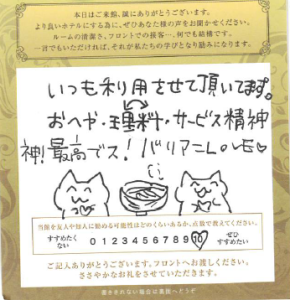 本日はご来館、誠にありがとうございます。
より良いホテルにする為に、ぜひあなた様の声をお聞かせください。
ルームの清潔さ、フロントでの接客…、何でも結構です。
一言でもいただければ、それが私たちの学びとなり励みになります。
いつも利用させて頂いてます。
おへや・理料・サービス精神
神!最高でス!バリアニLOVE♡
当館を友人や知人に勧める可能性はどのくらいあるか、点数で教えてください。
すすめたくない 0 1 2 3 4 5 6 7 8 9 10 ぜひすすめたい
ご記入ありがとうございます。フロントへお渡しください。
ささやかなお礼をさせていただきます。